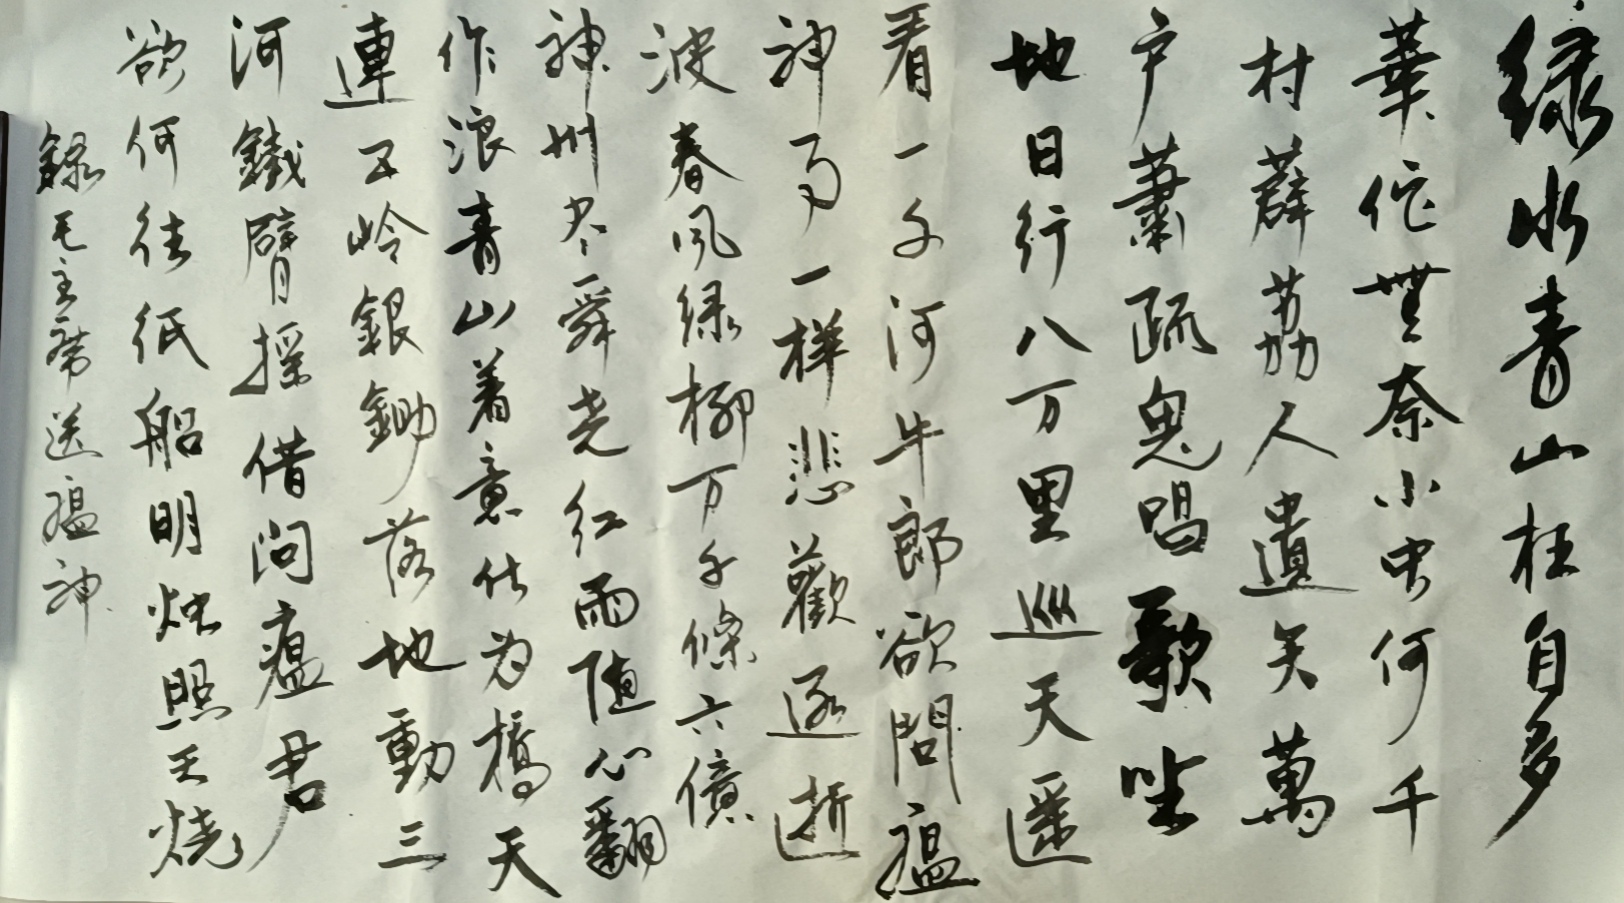 绿水青山枉自多
華佗無奈小虫何千
村薜荔人遺矢萬
户蕭疏鬼唱歌坐
地日行八万里巡天遥
看一千河牛郎欲問瘟
神事一样悲歡逐逝
波春风绿柳万千條六億
神州尽舜尧红雨随心翻
作浪青山着意化为橋天
連五岭銀鋤落地動三
河鐵臂摇借问瘟君
欲何往纸船明烛照天烧
錄毛主席送瘟神